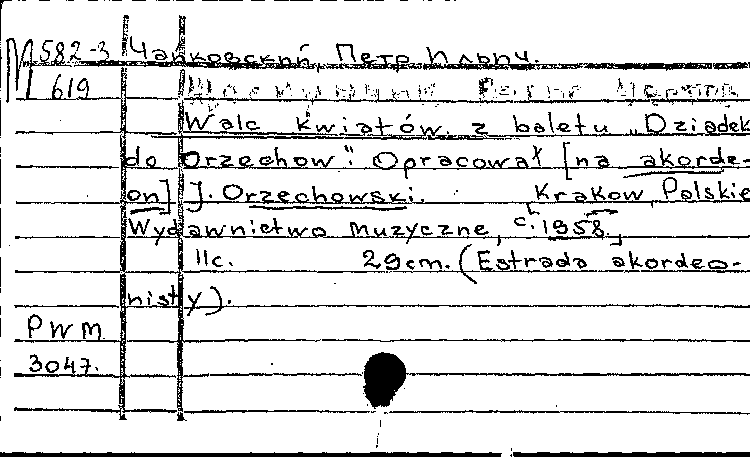 М 582-3 Чайковский, Петр Ильич.
619
Walc kwiatów z baletu „Dziadek
do Orzechow". Opracował [na akorde-
on] J. Orzechowski. Kraków, Polskie
Wydawnictwo muzyczne, [c. 1958.]
11c. 29cm. (Estrada akordeo-
nisty).
PWM
3047.